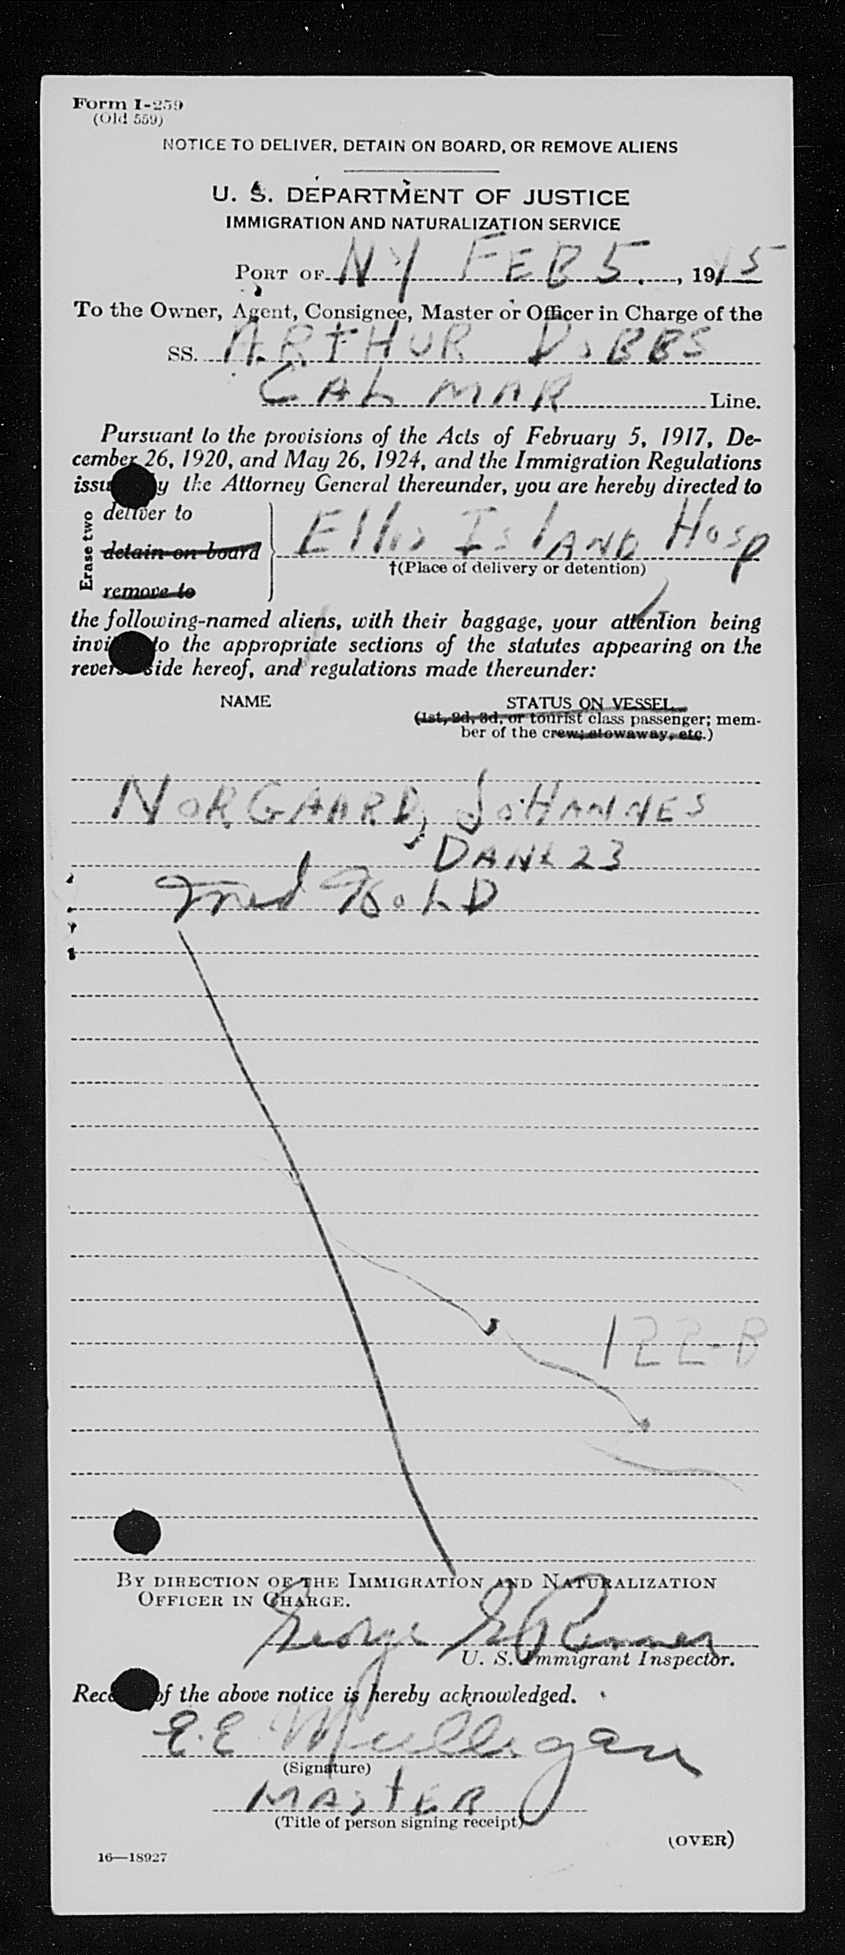 Form I-259
(Old 559)
NOTICE TO DELIVER, DETAIN ON BOARD, OR REMOVE ALIENS
U. S. DEPARTMENT OF JUSTICE
IMMIGRATION AND NATURALIZATION SERVICE
PORT OF NY FEB 5, 1945
To the Owner, Agent, Consignee, Master or Officer in Charge of the
SS. ARTHUR DOBBS
CALMAR Line.
Pursuant to the provisions of the Acts of February 5, 1917, De-
cember 26, 1920, and May 26, 1924, and the Immigration Regulations
issu y the Attorney General thereunder, you are hereby directed to
Erase two
deliver to
detain on board
remove to
Ellis ISLAND Hosp
†(Place of delivery or detention)
the following-named aliens, with their baggage, your attention being
invi to the appropriate sections of the statutes appearing on the
revers side hereof, and regulations made thereunder:
NAME STATUS ON VESSEL
(1st, 2d, 3d, or tourist class passenger; mem-
ber of the crew; stowaway, etc.)
NORGAARD, JOHANNES
DANE 23
Med HOLD
122-B
BY DIRECTION OF THE IMMIGRATION AND NATURALIZATION
OFFICER IN CHARGE.
George Renner
U. S. Immigrant Inspector.
Rece of the above notice is hereby acknowledged.
E.E Mulligan
(Signature)
MASTER
(Title of person signing receipt)
(OVER)
16—18927